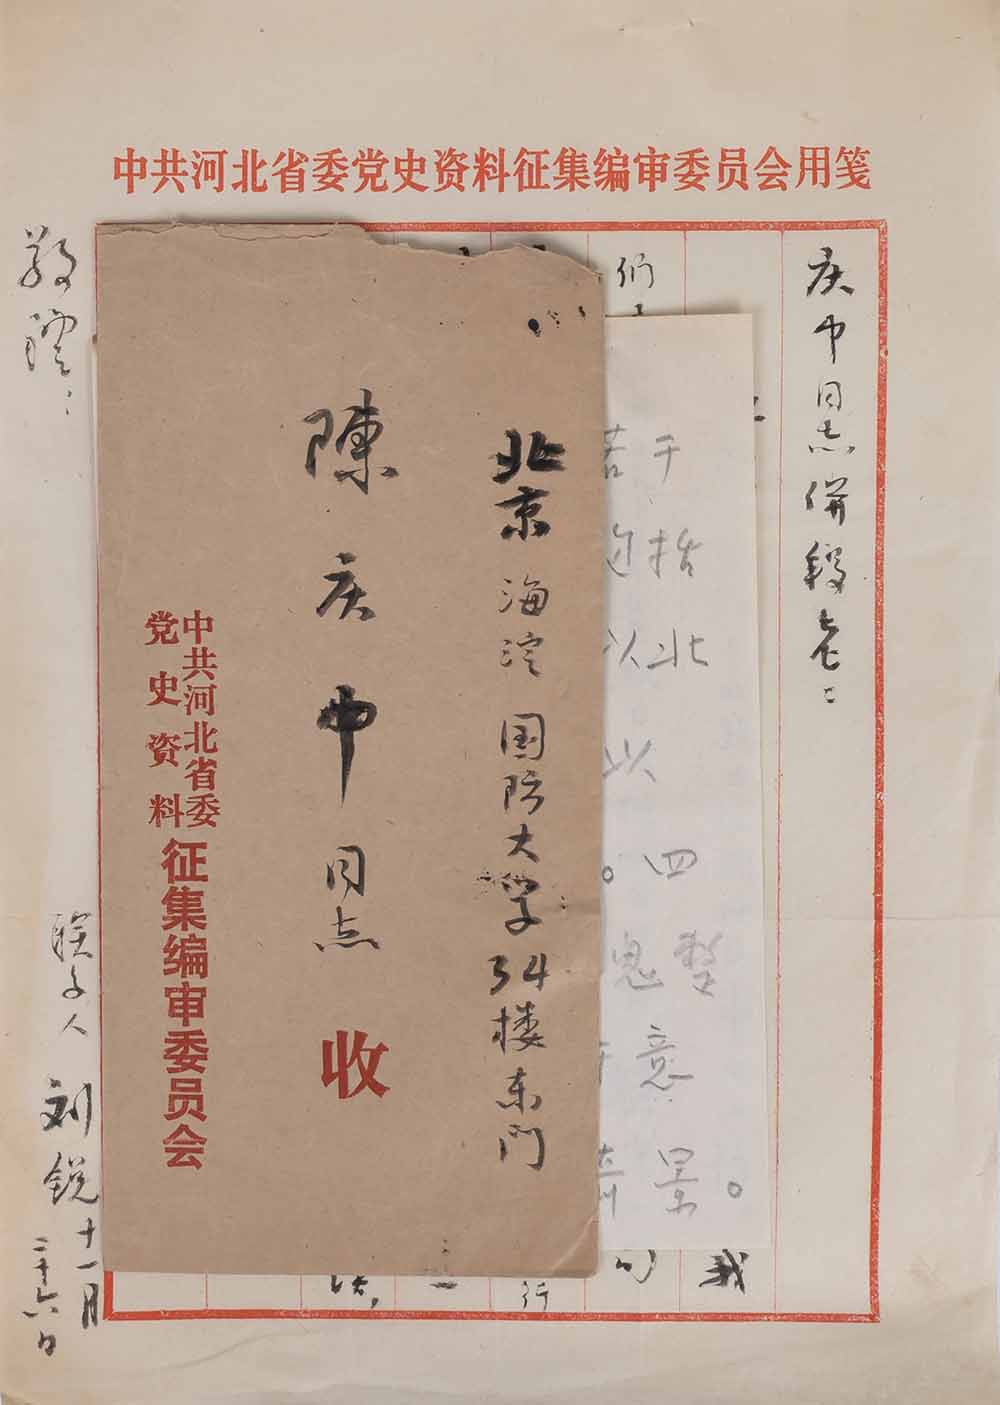 中共河北省委党史资料征集编审委员会用笺
庆中同志
们
我
敬礼：
刘锐
十一月
二十六日
北京 海淀 国防大学34楼东门
陳庆中同志 收
中共河北省委
党史资料
征集编审委员会
若干
包括
以北
以
。四
整
意
景。